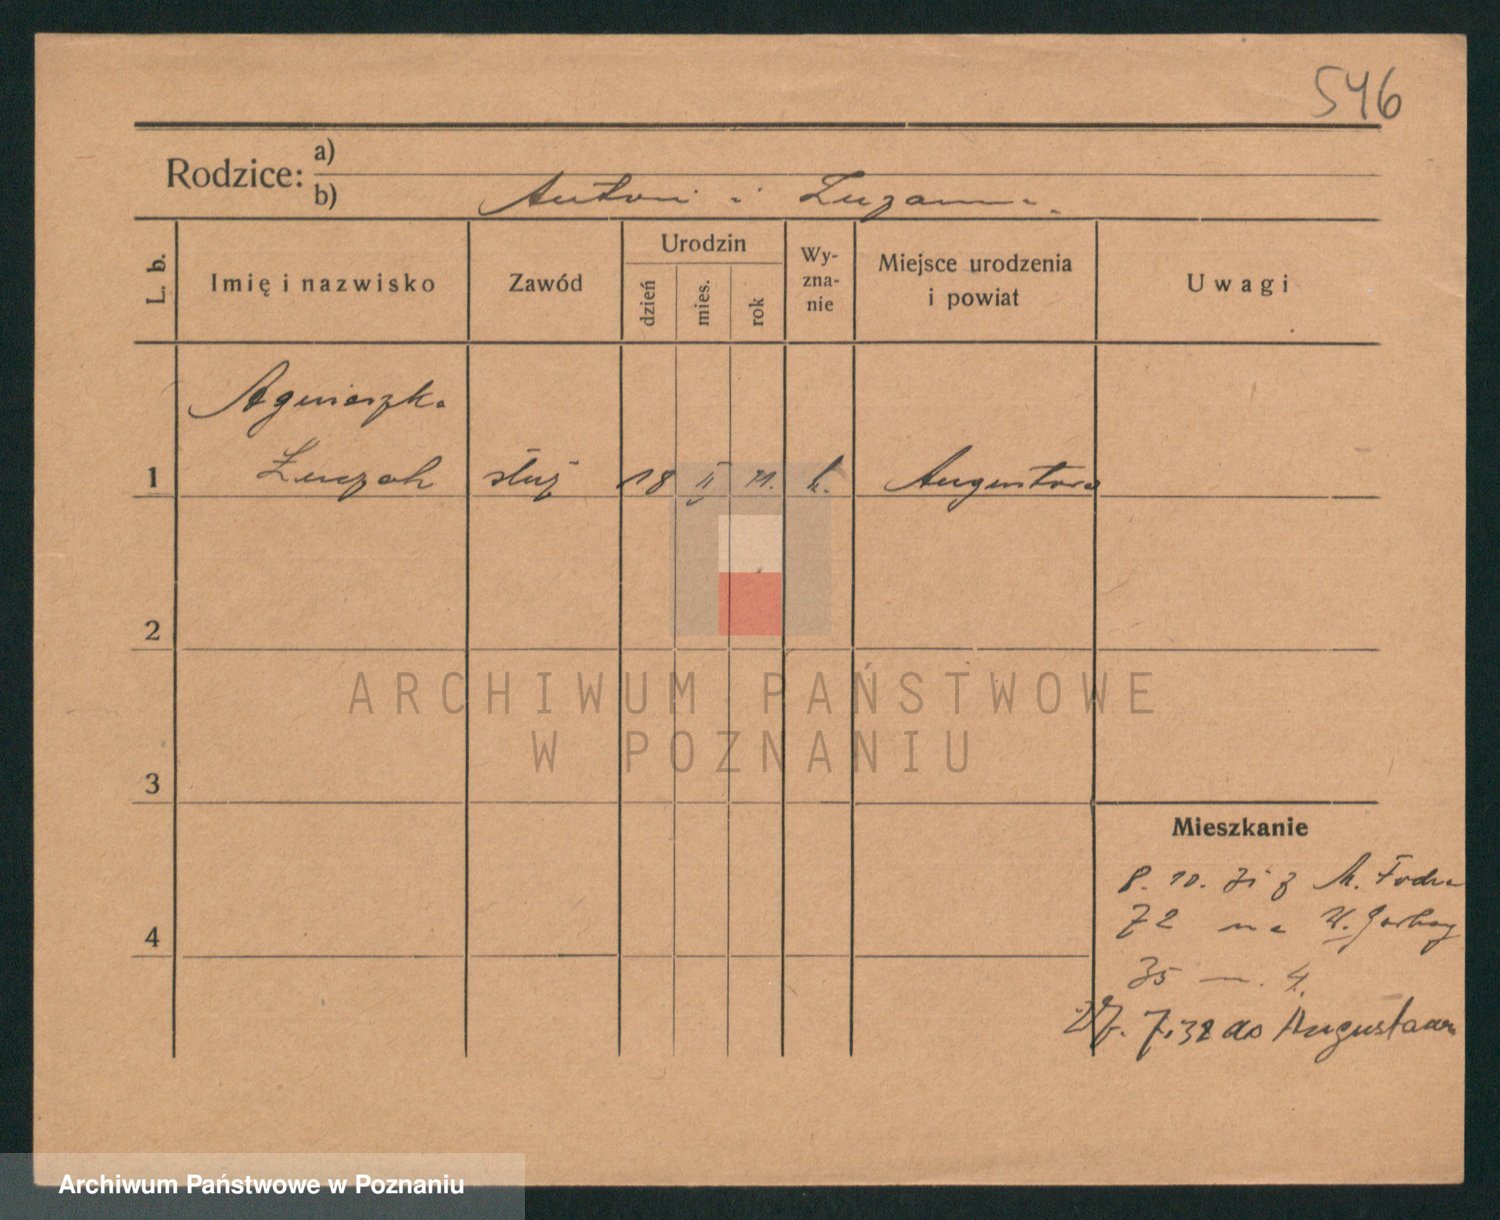 546
Rodzice:
a)
b) Antoni i Zuzanna.
L. b.
Imię i nazwisko
Zawód
Urodzin
dzień
mies.
rok
Wy-
zna-
nie
Miejsce urodzenia
i powiat
Uwagi
Agnieszka
1 służ 18 II 11. k. Augustowo
2
ARCHIWUM PAŃSTWOWE
W POZNANIU
3
Mieszkanie
8. 10. 31 z M. Focha
72 na W. Garbary
4
35 m. 4.
27. 7.32 do
Archiwum Państwowe w Poznaniu